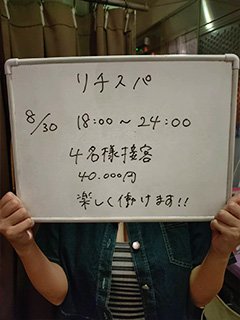 リチスパ
8/30 18:00～24:00
4名様接客
40.000円
楽しく働けます!!